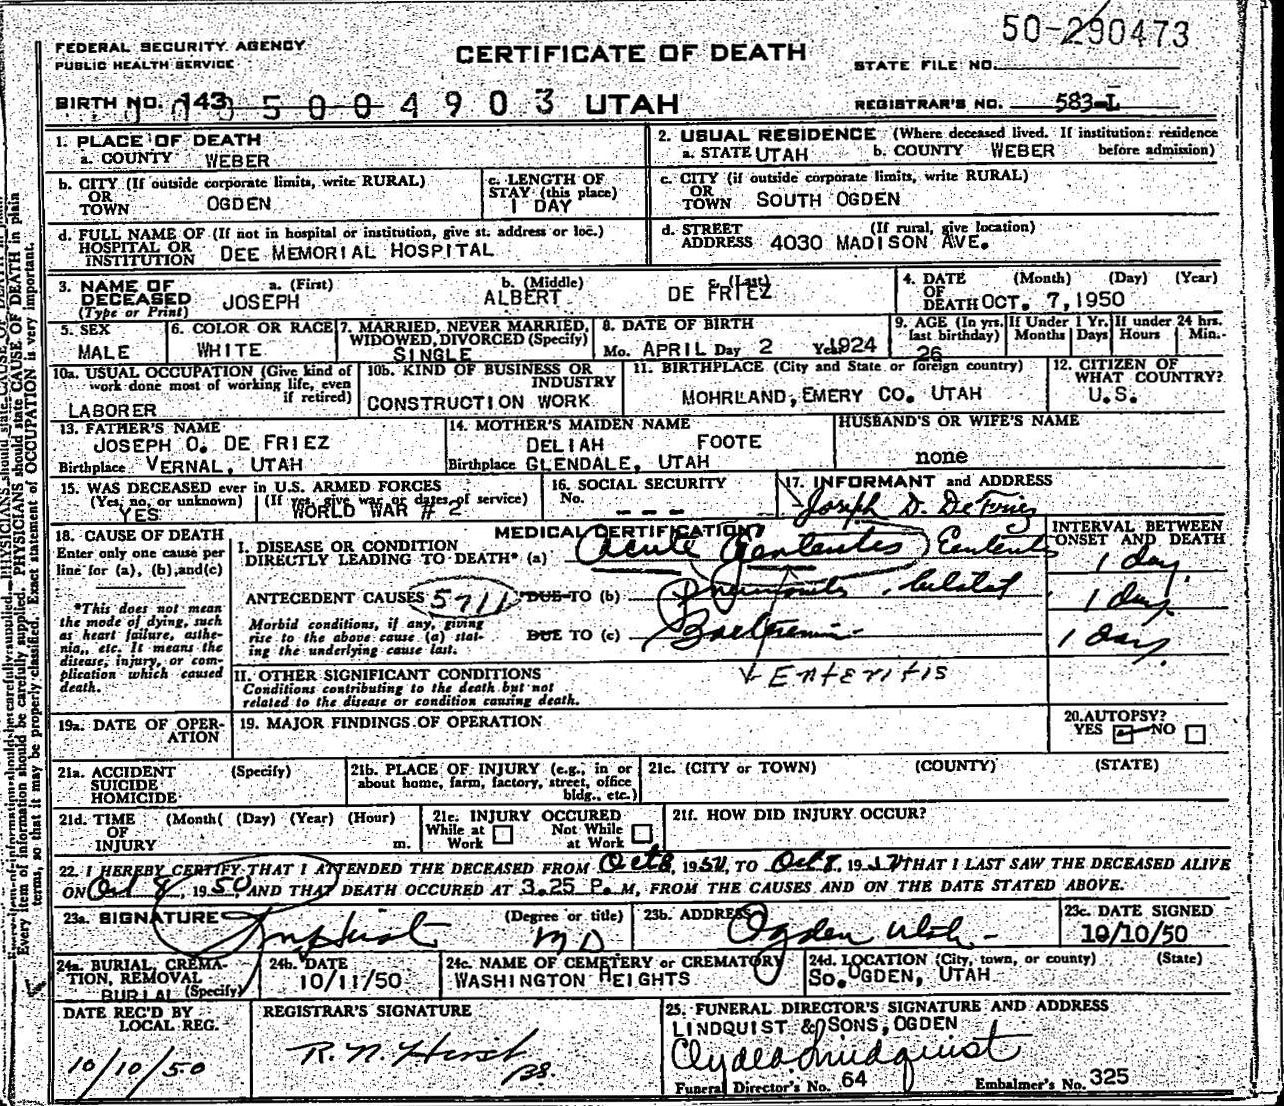 50-290473
FEDERAL SECURITY AGENCY
PUBLIC HEALTH SERVICE
CERTIFICATE OF DEATH
STATE FILE NO.
BIRTH NO. 143 5004903 UTAH
REGISTRAR'S NO. 583-L
1. PLACE OF DEATH
a. COUNTY WEBER
2. USUAL RESIDENCE (Where deceased lived. If institution: residence before admission)
a. STATE UTAH b. COUNTY WEBER
b. CITY (If outside corporate limits, write RURAL)
OR TOWN OGDEN
c. LENGTH OF STAY (this place)
1 DAY
c. CITY (if outside corporate limits, write RURAL)
OR TOWN SOUTH OGDEN
d. FULL NAME OF (If not in hospital or institution, give st. address or loc.)
HOSPITAL OR INSTITUTION DEE MEMORIAL HOSPITAL
d. STREET ADDRESS (If rural, give location)
4030 MADISON AVE.
3. NAME OF DECEASED (Type or Print)
a. (First) b. (Middle) c. (Last)
JOSEPH ALBERT DE FRIEZ
4. DATE OF DEATH (Month) (Day) (Year)
OCT. 7, 1950
5. SEX
MALE
6. COLOR OR RACE
WHITE
7. MARRIED, NEVER MARRIED, WIDOWED, DIVORCED (Specify)
SINGLE
8. DATE OF BIRTH
Mo. APRIL Day 2 Year 1924
9. AGE (In yrs. last birthday)
26
If Under 1 Yr. Months Days
If under 24 hrs. Hours Min.
10a. USUAL OCCUPATION (Give kind of work done most of working life, even if retired)
LABORER
10b. KIND OF BUSINESS OR INDUSTRY
CONSTRUCTION WORK
11. BIRTHPLACE (City and State or foreign country)
MOHRLAND, EMERY CO. UTAH
12. CITIZEN OF WHAT COUNTRY?
U.S.
13. FATHER'S NAME
JOSEPH O. DE FRIEZ
Birthplace VERNAL, UTAH
14. MOTHER'S MAIDEN NAME
DELIAH FOOTE
Birthplace GLENDALE, UTAH
HUSBAND'S OR WIFE'S NAME
none
15. WAS DECEASED ever in U.S. ARMED FORCES
(Yes, no, or unknown) (If yes, give war or dates of service)
YES WORLD WAR # 2
16. SOCIAL SECURITY
No. - - -
17. INFORMANT and ADDRESS
Joseph D. DeFriez
18. CAUSE OF DEATH
Enter only one cause per line for (a), (b), and (c)
*This does not mean the mode of dying, such as heart failure, asthenia, etc. It means the disease, injury, or complication which caused death.
MEDICAL CERTIFICATION
I. DISEASE OR CONDITION DIRECTLY LEADING TO DEATH* (a) Acute
INTERVAL BETWEEN ONSET AND DEATH
1 day.
ANTECEDENT CAUSES 5711 DUE TO (b)
1 day.
Morbid conditions, if any, giving rise to the above cause (a) stating the underlying cause last.
DUE TO (c)
1 day.
ENTERITIS
II. OTHER SIGNIFICANT CONDITIONS
Conditions contributing to the death but not related to the disease or condition causing death.
19a. DATE OF OPERATION
19. MAJOR FINDINGS OF OPERATION
20. AUTOPSY?
YES NO
21a. ACCIDENT SUICIDE HOMICIDE (Specify)
21b. PLACE OF INJURY (e.g., in or about home, farm, factory, street, office bldg., etc.)
21c. (CITY or TOWN) (COUNTY) (STATE)
21d. TIME OF INJURY (Month( (Day) (Year) (Hour) m.
21e. INJURY OCCURED
While at Work Not While at Work
21f. HOW DID INJURY OCCUR?
22. I HEREBY CERTIFY THAT I ATTENDED THE DECEASED FROM Oct 8, 1950, TO Oct 8, 1950 THAT I LAST SAW THE DECEASED ALIVE
ON Oct 8, 1950, AND THAT DEATH OCCURED AT 3.25 P. M, FROM THE CAUSES AND ON THE DATE STATED ABOVE.
23a. SIGNATURE (Degree or title)
Hirst MD
23b. ADDRESS
Ogden Utah
23c. DATE SIGNED
10/10/50
24a. BURIAL, CREMATION, REMOVAL (Specify)
BURIAL
24b. DATE
10/11/50
24c. NAME OF CEMETERY or CREMATORY
WASHINGTON HEIGHTS
24d. LOCATION (City, town, or county) (State)
SO. OGDEN, UTAH
DATE REC'D BY LOCAL REG.
10/10/50
REGISTRAR'S SIGNATURE
R. N. Hirst
BS.
25. FUNERAL DIRECTOR'S SIGNATURE AND ADDRESS
LINDQUIST & SONS, OGDEN
Clyde A. Lindquist
Funeral Director's No. 64 Embalmer's No. 325